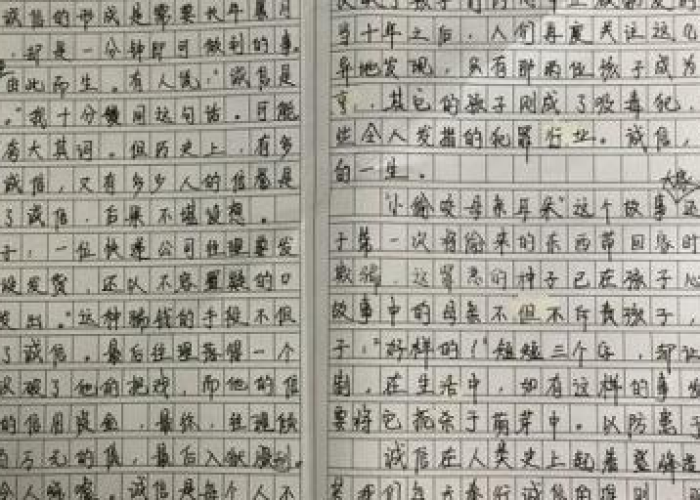 诚信的形成是需要长年累月
，却是一分钟即可做到的事。
由此而生。有人说，"诚信是
。"我十分赞同这句话。可能
夸大其词。但历史上，有多
诚信，又有多少人的信感是
了诚信，后果不堪设想。
子，一位快递公司经理要发
没发货，还以不容置疑的口
发出。"这种骗钱的手段不但
了诚信。最后经理落得一个
识破了他的把戏，而他的信
的信用资金，最终，经理
百万元的债，最后入狱
令人唏嘘。诚信是每个人不
当十年之后，人们再度关注这
异地发现，只有那两位孩子成为
，其它的孩子则成了吸毒犯、
些令人发指的犯罪行业。诚信，
的一生。
"小偷咬母亲耳朵"这个故事
子第一次将偷来的东西带回家时
欺骗，这罪恶的种子已在孩子心
故事中的母亲不但不斥责孩子，
子，"好样的！"短短三个字，却
剧。在生活中，如有这样的事
要将它扼杀于萌芽中。以防患于
诚信在人类史上起着